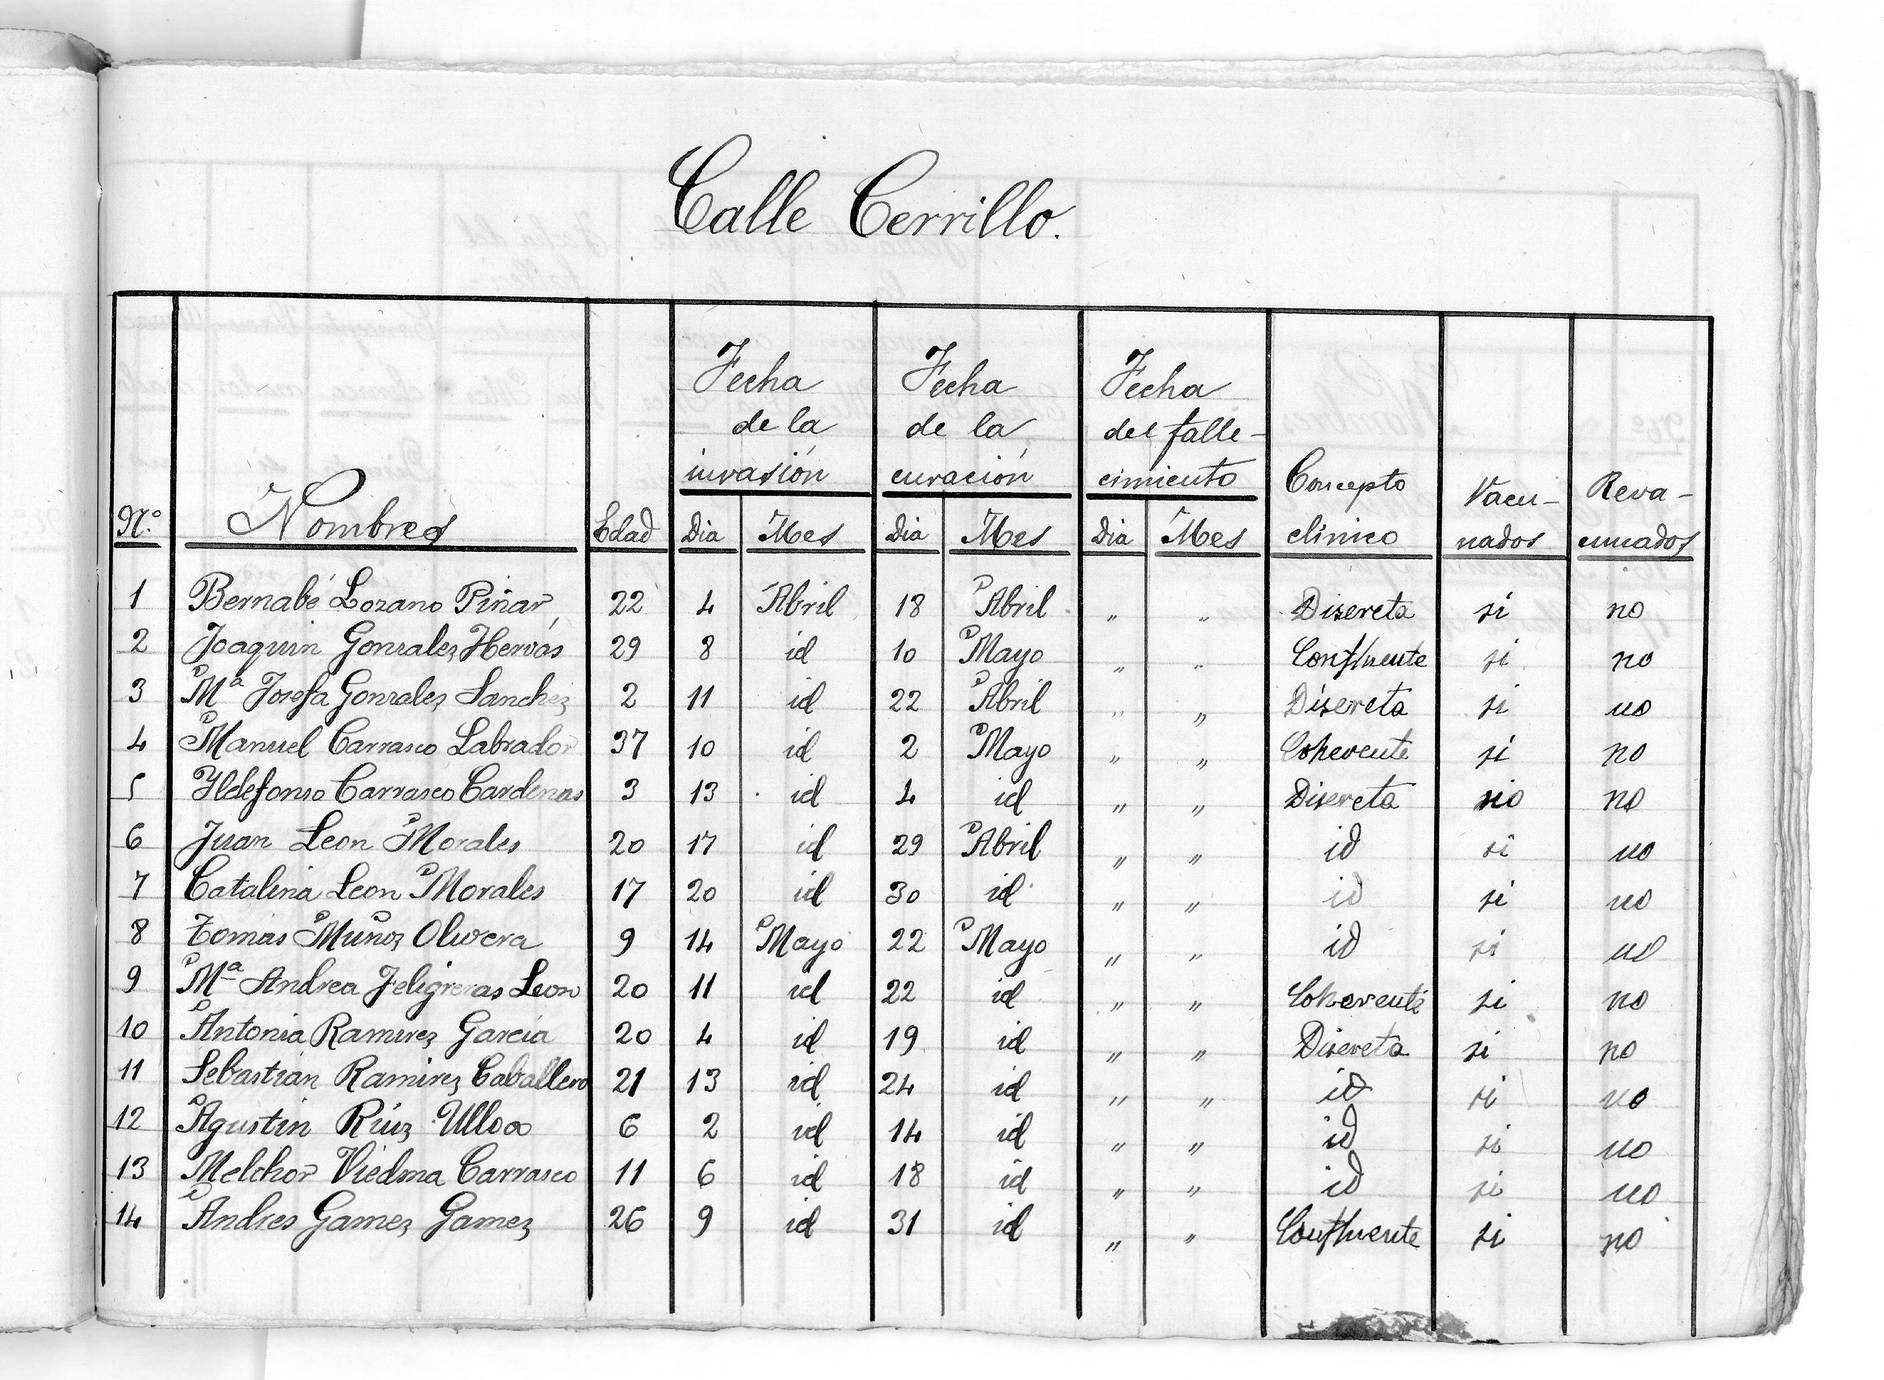 Calle Cerrillo.
Fecha Fecha Fecha
de la de la del falle-
invasión curación cimiento Concepto Vacu- Reva-
Nº Nombres Edad Dia Mes Dia Mes Dia Mes clínico nados cunados
1 Bernabé Lozano Piñar 22 4 Abril 18 Abril „ „ Discreta si no
2 Joaquin Gonzalez Hervás 29 8 id 10 Mayo „ „ Confluente si no
3 Mª Josefa Gonzalez Sanchez 2 11 id 22 Abril „ „ Discreta si no
4 Manuel Carrasco Labrador 37 10 id 2 Mayo „ „ Coherente si no
5 Ildefonso Carrasco Cardenas 3 13 id 4 id „ „ Discreta no no
6 Juan Leon Morales 20 17 id 29 Abril „ „ id si no
7 Catalina Leon Morales 17 20 id 30 id „ „ id si no
8 Tomás Muñoz Olivera 9 14 Mayo 22 Mayo „ „ id si no
9 Mª Andrea Feligreras Leon 20 11 id 22 id „ „ Coherente si no
10 Antonia Ramirez García 20 4 id 19 id „ „ Discreta si no
11 Sebastián Ramirez Caballero 21 13 id 24 id „ „ id si no
12 Agustin Ruiz Ulloa 6 2 id 14 id „ „ id si no
13 Melchor Viedma Carrasco 11 6 id 18 id „ „ id si no
14 Andres Gamez Gamez 26 9 id 31 id „ „ Confluente si no